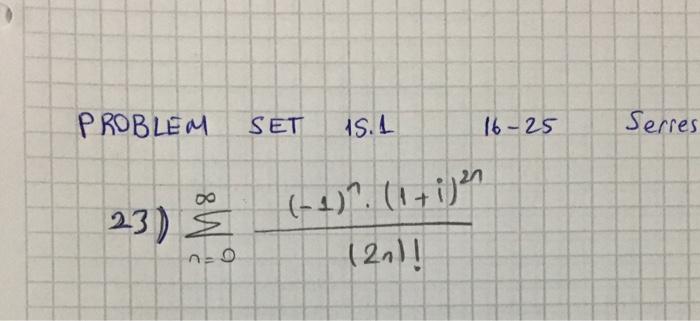 PROBLEM SET 15.1 16-25 Series
23) ∞ Σ n=0 (-1)^n . (1+i)^2n / (2n)!